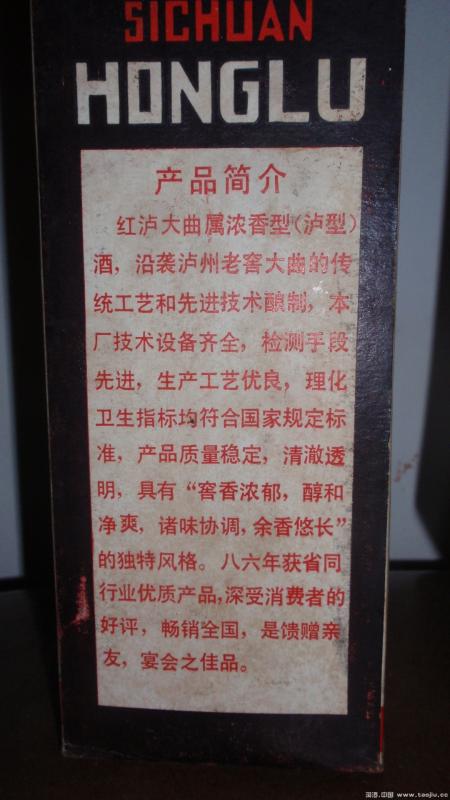 SICHUAN
HONGLU
产品简介
红泸大曲属浓香型(泸型)
酒，沿袭泸州老窖大曲的传
统工艺和先进技术酿制，本
厂技术设备齐全，检测手段
先进，生产工艺优良，理化
卫生指标均符合国家规定标
准，产品质量稳定，清澈透
明，具有“窖香浓郁，醇和
净爽，诸味协调，余香悠长”
的独特风格。八六年获省同
行业优质产品，深受消费者的
好评，畅销全国，是馈赠亲
友，宴会之佳品。
淘酒.中国 www.taojiu.cc